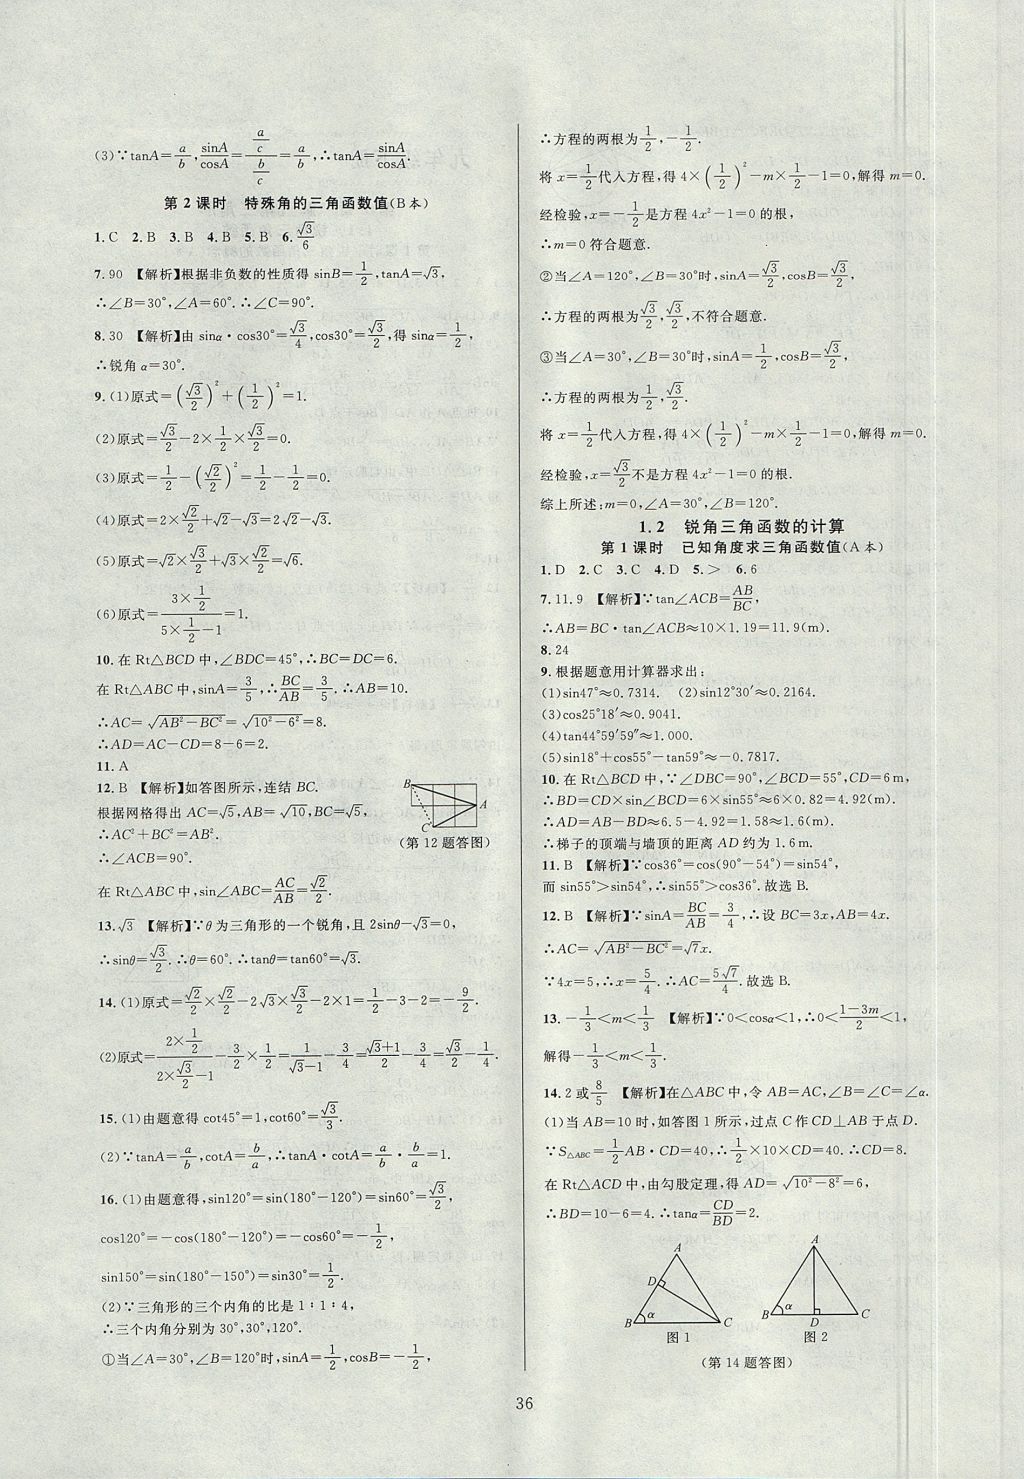 (3)∵tanA=a/b, sinA/cosA=(a/c)/(b/c)=a/b,∴tanA=sinA/cosA.
第2课时 特殊角的三角函数值(B本)
1.C 2.B 3.B 4.B 5.B 6.√3/6
7.90 【解析】根据非负数的性质得 sinB=1/2,tanA=√3,
∴∠B=30°,∠A=60°.∴∠C=90°.
8.30 【解析】由 sinα·cos30°=√3/4,cos30°=√3/2,得 sinα=1/2,
∴锐角 α=30°.
9.(1)原式=(√3/2)²+(1/2)²=1.
(2)原式=√3/2-2×1/2×√3/2=0.
(3)原式=1/2-(√2/2)²=1/2-1/2=0.
(4)原式=2×√2/2+√2-√3=2√2-√3.
(5)原式=√2×√3/2+√2×√3/2=√6.
(6)原式=(3×1/2)/(5×1/2-1)=1.
10.在 Rt△BCD 中,∠BDC=45°,∴BC=DC=6.
在 Rt△ABC 中,sinA=3/5,∴BC/AB=3/5.∴AB=10.
∴AC=√(AB²-BC²)=√(10²-6²)=8.
∴AD=AC-CD=8-6=2.
11.A
12.B 【解析】如答图所示,连结 BC.
根据网格得出 AC=√5,AB=√10,BC=√5,
∴AC²+BC²=AB².
∴∠ACB=90°.
B
A
C
(第12题答图)
在 Rt△ABC 中,sin∠ABC=AC/AB=√2/2.
13.√3 【解析】∵θ 为三角形的一个锐角,且 2sinθ-√3=0,
∴sinθ=√3/2.∴θ=60°.∴tanθ=tan60°=√3.
14.(1)原式=√2/2×√2/2-2√3×√3/2-2×1=1/2-3-2=-9/2.
(2)原式=(2×1/2)/(2×√3/2-1)-3/2×1/2=1/(√3-1)-3/4=(√3+1)/2-3/4=√3/2-1/4.
15.(1)由题意得 cot45°=1,cot60°=√3/3.
(2)∵tanA=a/b,cotA=b/a,∴tanA·cotA=a/b·b/a=1.
16.(1)由题意得,sin120°=sin(180°-120°)=sin60°=√3/2,
cos120°=-cos(180°-120°)=-cos60°=-1/2,
sin150°=sin(180°-150°)=sin30°=1/2.
(2)∵三角形的三个内角的比是 1∶1∶4,
∴三个内角分别为 30°,30°,120°.
①当∠A=30°,∠B=120°时,sinA=1/2,cosB=-1/2,
∴方程的两根为1/2,-1/2.
将 x=1/2代入方程,得 4×(1/2)²-m×1/2-1=0,解得 m=0.
经检验,x=-1/2是方程 4x²-1=0 的根,
∴m=0 符合题意.
②当∠A=120°,∠B=30°时,sinA=√3/2,cosB=√3/2,
∴方程的两根为√3/2,√3/2,不符合题意.
③当∠A=30°,∠B=30°时,sinA=1/2,cosB=√3/2,
∴方程的两根为1/2,√3/2.
将 x=1/2代入方程,得 4×(1/2)²-m×1/2-1=0,解得 m=0.
经检验,x=√3/2不是方程 4x²-1=0 的根.
综上所述:m=0,∠A=30°,∠B=120°.
1.2 锐角三角函数的计算
第1课时 已知角度求三角函数值(A本)
1.D 2.C 3.C 4.D 5.> 6.6
7.11.9 【解析】∵tan∠ACB=AB/BC,
∴AB=BC·tan∠ACB≈10×1.19=11.9(m).
8.24
9.根据题意用计算器求出:
(1)sin47°≈0.7314. (2)sin12°30′≈0.2164.
(3)cos25°18′≈0.9041.
(4)tan44°59′59″≈1.000.
(5)sin18°+cos55°-tan59°≈-0.7817.
10.在 Rt△BCD 中,∵∠DBC=90°,∠BCD=55°,CD=6m,
∴BD=CD×sin∠BCD=6×sin55°≈6×0.82=4.92(m).
∴AD=AB-BD≈6.5-4.92=1.58≈1.6(m).
∴梯子的顶端与墙顶的距离 AD 约为 1.6m.
11.B 【解析】∵cos36°=cos(90°-54°)=sin54°,
而 sin55°>sin54°,∴sin55°>cos36°.故选 B.
12.B 【解析】∵sinA=BC/AB=3/4,∴设 BC=3x,AB=4x.
∴AC=√(AB²-BC²)=√7x.
∵4x=5,∴x=5/4.∴AC=5√7/4.故选 B.
13.-1/3<m<1/3 【解析】∵0<cosα<1,∴0<(1-3m)/2<1,
解得-1/3<m<1/3.
14.2或8/5 【解析】在△ABC 中,令 AB=AC,∠B=∠C=∠α.
(1)当 AB=10 时,如答图 1 所示,过点 C 作 CD⊥AB 于点 D.
∵S△ABC=1/2AB·CD=40,∴1/2×10×CD=40.∴CD=8.
在 Rt△ACD 中,由勾股定理,得 AD=√(10²-8²)=6,
∴BD=10-6=4.∴tanα=CD/BD=2.
A
D
B
α
C
图 1
A
B
α
D
C
图 2
(第14题答图)
36